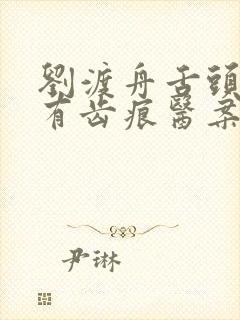 劉渡舟舌頭
有齿痕醫案
尹琳